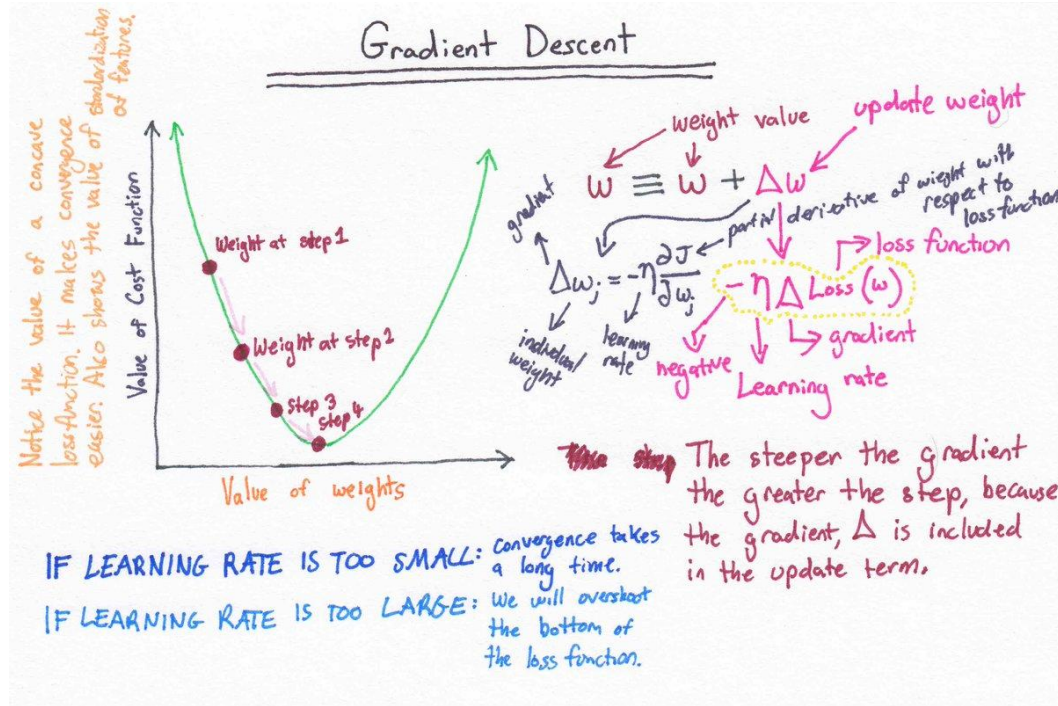 Gradient Descent
Notice the value of a concave
loss function. It makes convergence
easier. Also shows the value of standardization
of features.
Value of Cost Function
Weight at step 1
Weight at step 2
step 3
step 4
Value of weights
weight value
update weight
w ≡ w + Δw
gradient
partial derivative of wieght with
respect to
loss function
Δw_j = -η ∂J/∂w_j
individual
weight
learning
rate
loss function
-η Δ Loss (w)
gradient
negative
Learning rate
The steeper the gradient
the greater the step, because
the gradient, Δ is included
in the update term.
IF LEARNING RATE IS TOO SMALL: convergence takes
a long time.
IF LEARNING RATE IS TOO LARGE: We will overshoot
the bottom of
the loss function.